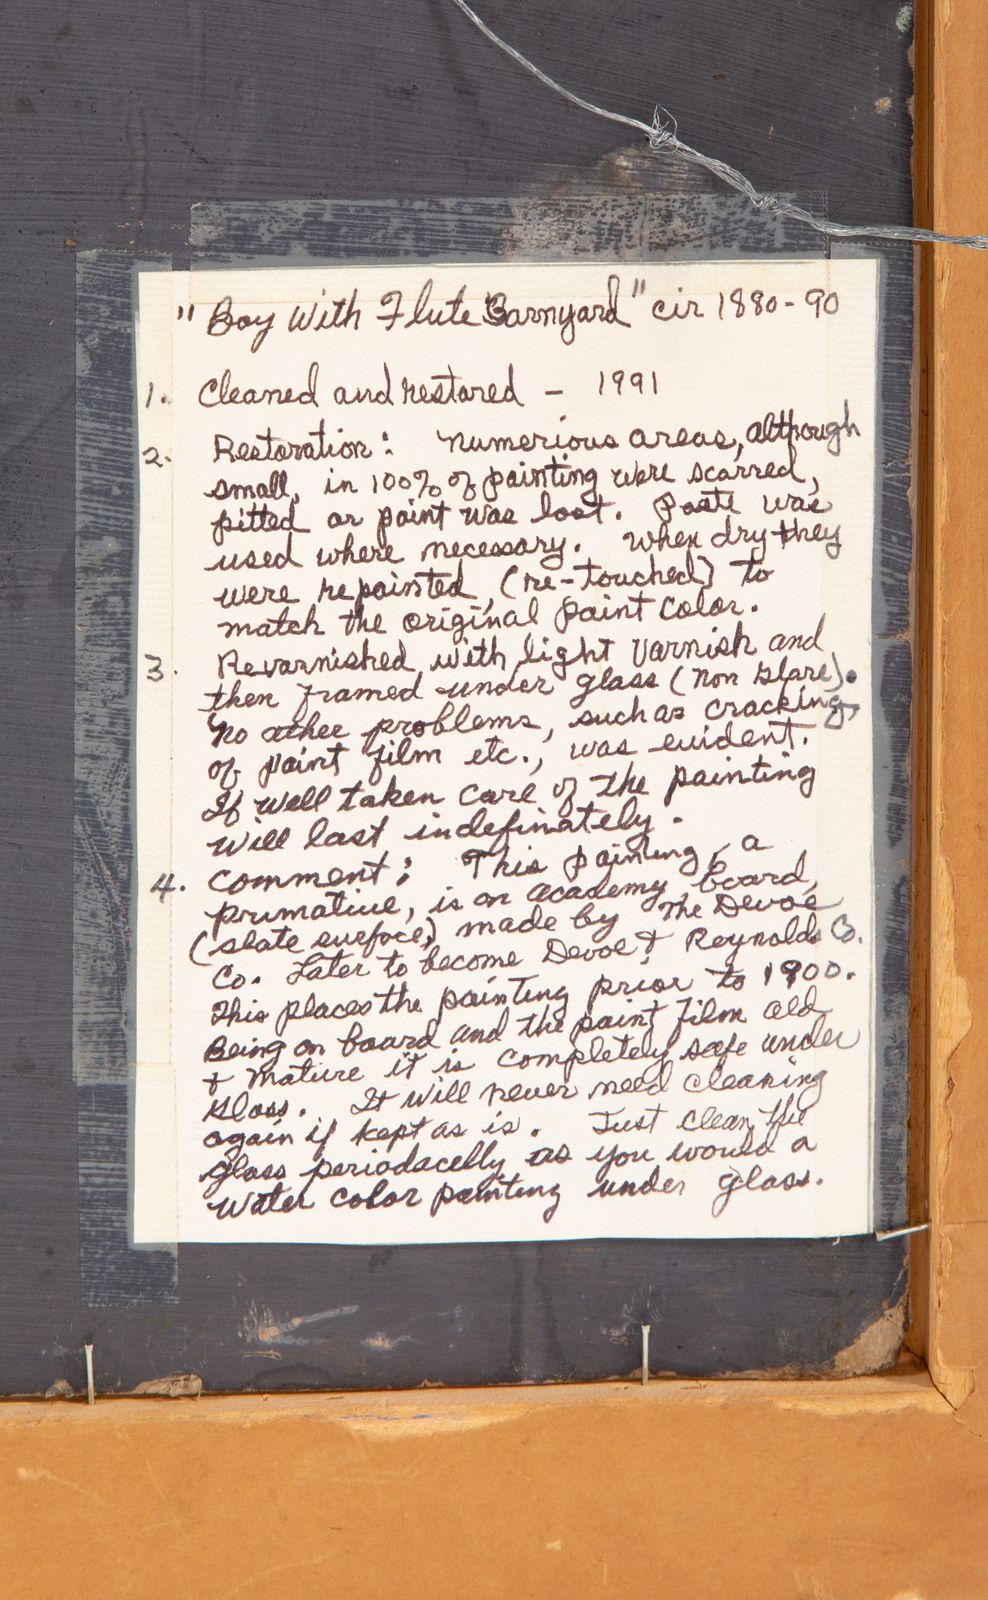 "Boy With Flute Barnyard" cir 1880-90
1. Cleaned and restored - 1991
2. Restoration: numerious areas, although
small, in 100% of painting were scarred,
pitted or paint was lost. Paste was
used where necessary. When dry they
were repainted, (re-touched) to
match the original paint color.
3. Revarnished with light varnish and
then framed under glass (non glare).
No other problems, such as cracking,
of paint film etc., was evident.
If well taken care of the painting
will last indefinately.
4. Comment: This painting, a
primative, is on academy board,
(slate surface,) made by The Devoe
Co. Later to become Devoe & Reynolds Co.
This places the painting prior to 1900.
Being on board and the paint film old
+ mature it is completely safe under
glass. It will never need cleaning
again if kept as is. Just clean the
glass periodacelly as you would a
water color painting under glass.